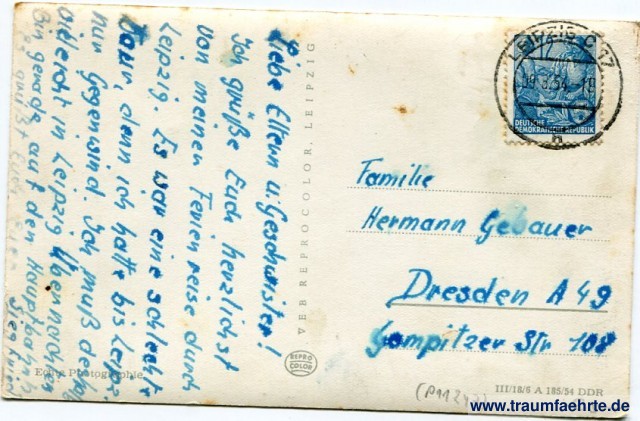 Liebe Eltern u. Geschwister!
Ich grüße Euch herzlichst
von meiner Ferienreise durch
Leipzig. Es war eine schlechte
Tour, denn ich hatte bis Leipz.
nur Gegenwind. Ich muß deswegen
vielleicht in Leipzig übernachten.
Bin gerade auf den Hauptbahnh.
Es grüßt Euch Euer
Siegfried
Echte Photographie
VEB REPROCOLOR, LEIPZIG
REPRO
COLOR
LEIPZIG C 17
DEUTSCHE
DEMOKRATISCHE REPUBLIK
Familie
Hermann Gebauer
Dresden A 49
Gompitzer Str 108
III/18/6 A 185/54 DDR
www.traumfaehrte.de